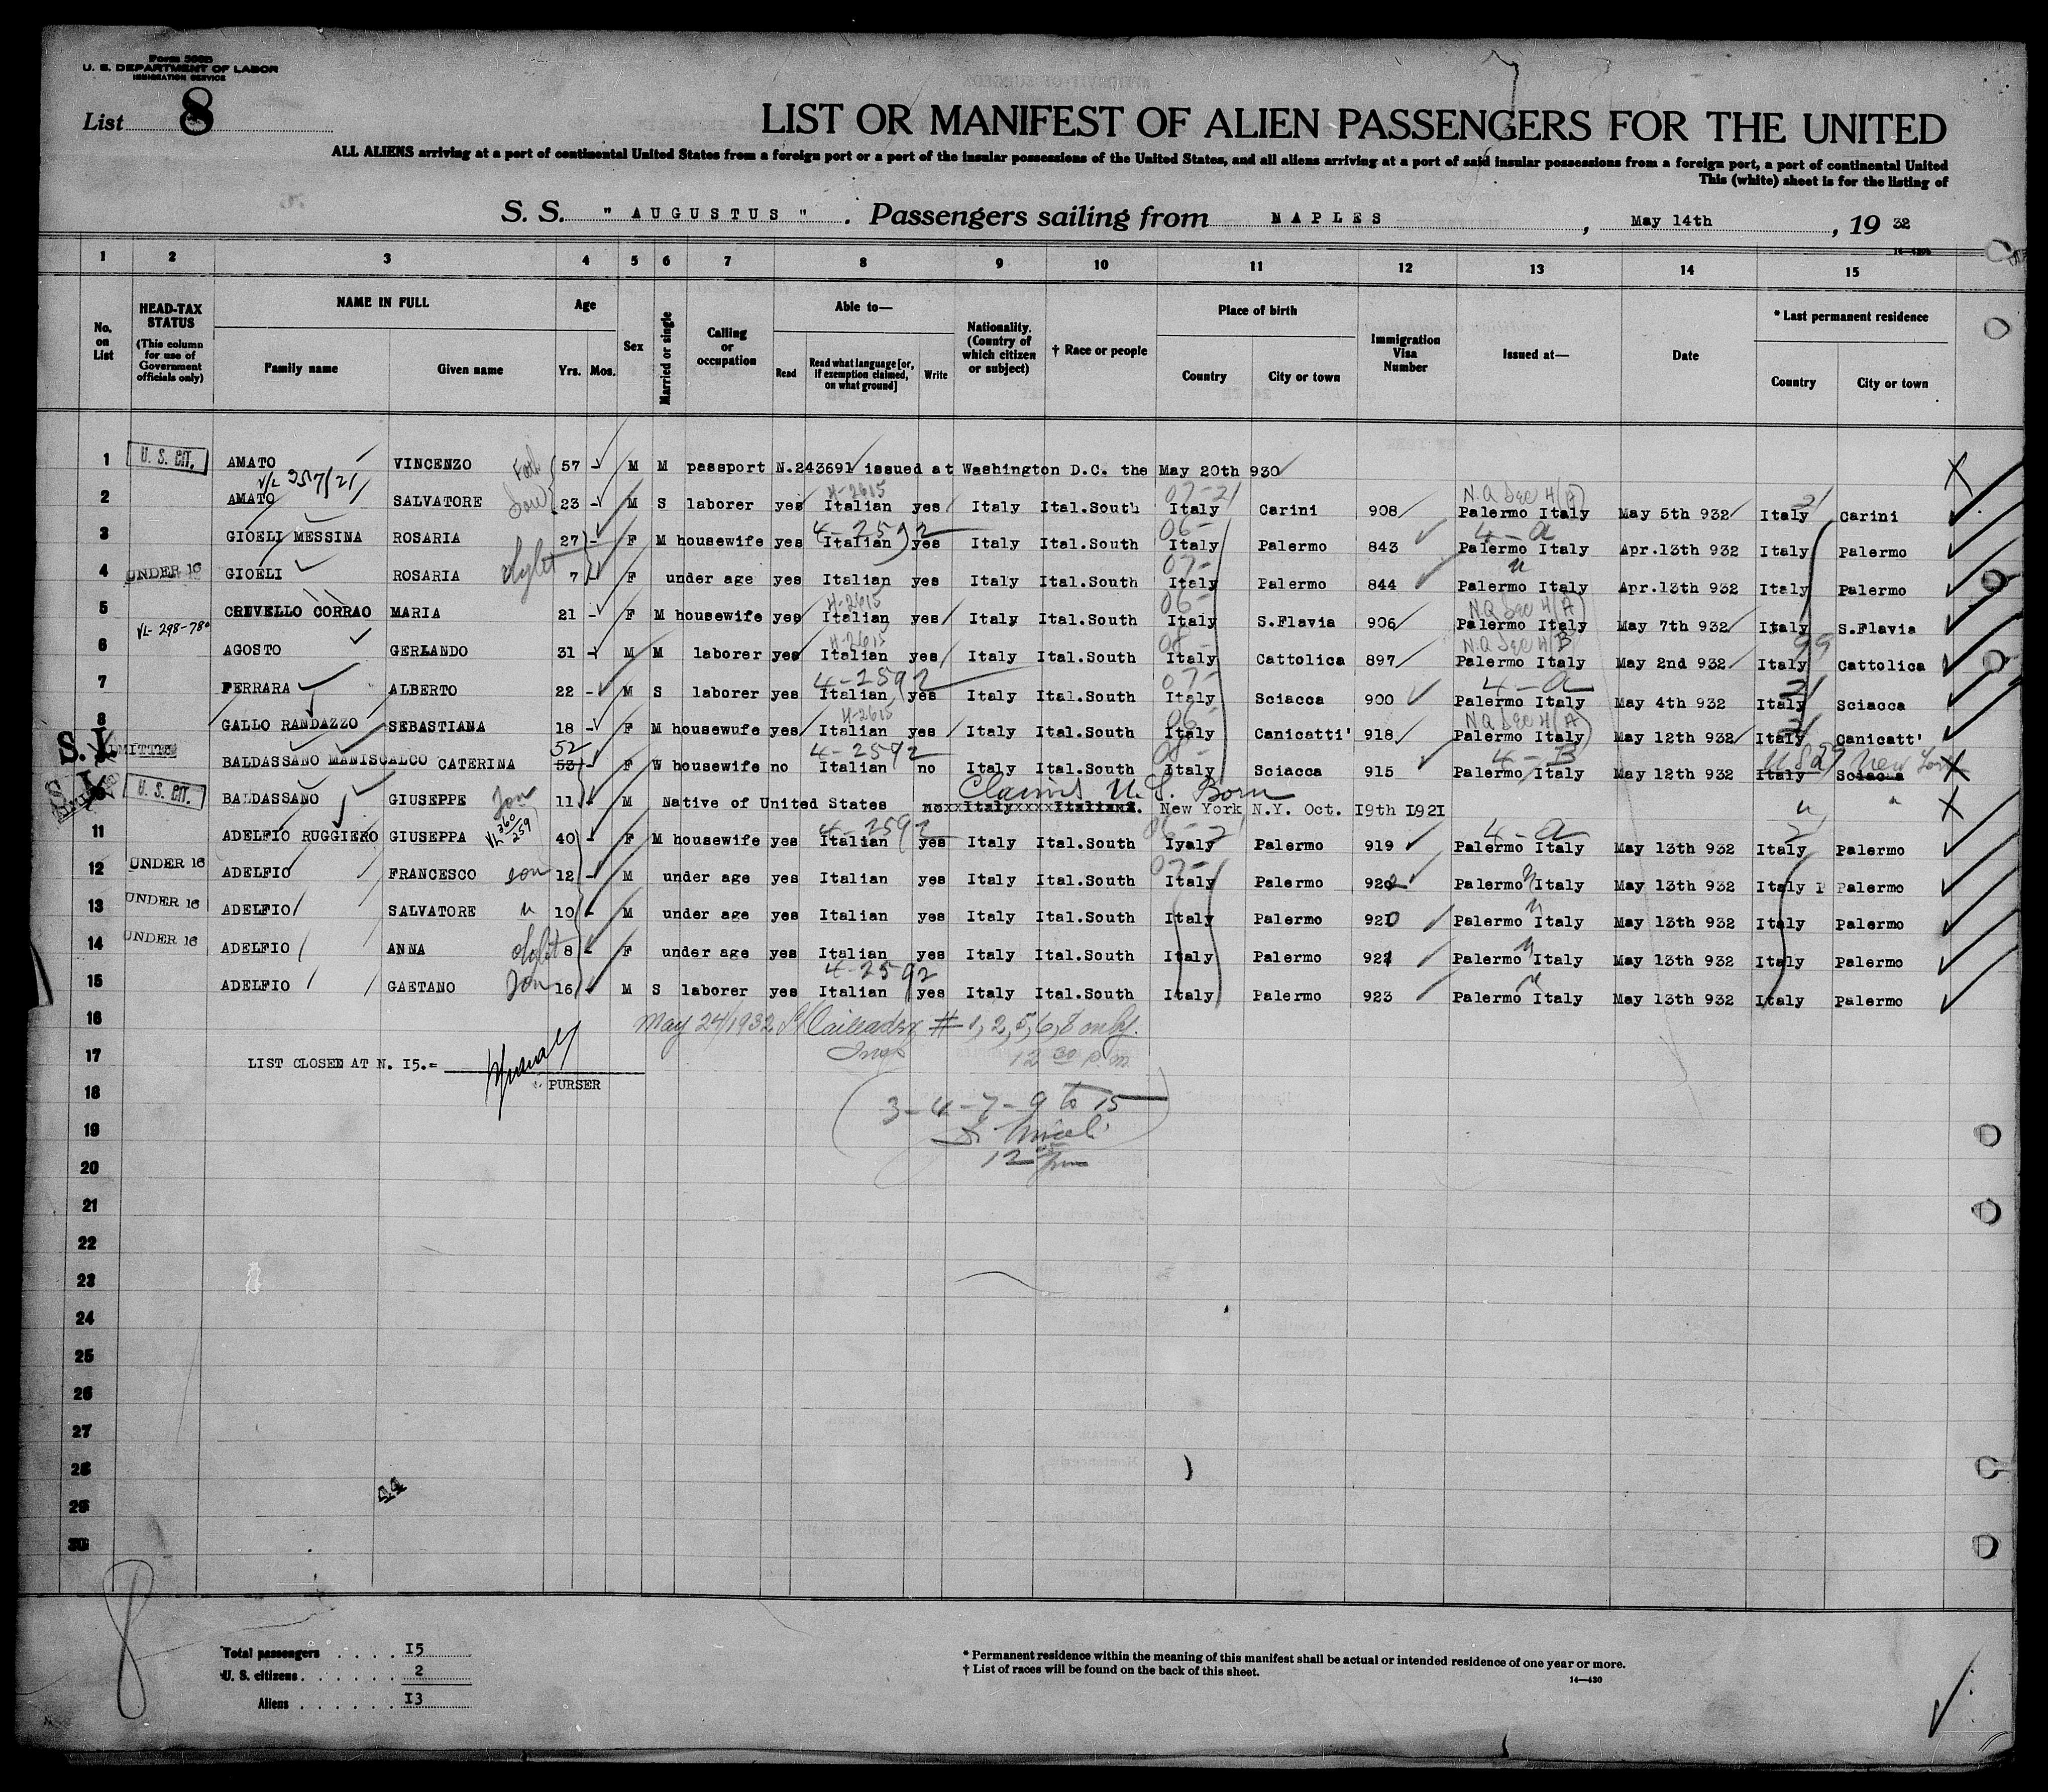 Form 500B
U. S. DEPARTMENT OF LABOR
IMMIGRATION SERVICE
List 8
LIST OR MANIFEST OF ALIEN PASSENGERS FOR THE UNITED
ALL ALIENS arriving at a port of continental United States from a foreign port or a port of the insular possessions of the United States, and all aliens arriving at a port of said insular possessions from a foreign port, a port of continental United
This (white) sheet is for the listing of
S. S. " AUGUSTUS " . Passengers sailing from NAPLES , May 14th , 19 32
1 2 3 4 5 6 7 8 9 10 11 12 13 14 15
No. on List
HEAD-TAX STATUS (This column for use of Government officials only)
NAME IN FULL
Family name Given name
Age
Yrs. Mos.
Sex
Married or single
Calling or occupation
Able to—
Read Read what language [or, if exemption claimed, on what ground] Write
Nationality. (Country of which citizen or subject)
† Race or people
Place of birth
Country City or town
Immigration Visa Number
Issued at—
Date
* Last permanent residence
Country City or town
1 U. S. CIT. AMATO VINCENZO 57 - M M passport N.243691 issued at Washington D.C. the May 20th 930
V/L 357/21 H-2615 07-21 N.Q Sec 4(A) 21
2 AMATO SALVATORE Son 23 - M S laborer yes Italian yes Italy Ital.South Italy Carini 908 Palermo Italy May 5th 932 Italy Carini
4-2592 06- 4-a
3 GIOELI MESSINA ROSARIA 27 - F M housewife yes Italian yes Italy Ital.South Italy Palermo 843 Palermo Italy Apr.13th 932 Italy Palermo
07- "
4 UNDER 16 GIOELI ROSARIA 7 - F under age yes Italian yes Italy Ital.South Italy Palermo 844 Palermo Italy Apr.13th 932 Italy Palermo
H-2615 06- N.Q Sec 4(A)
5 CRIVELLO CORRAO MARIA 21 - F M housewife yes Italian yes Italy Ital.South Italy S.Flavia 906 Palermo Italy May 7th 932 Italy S.Flavia
VL-298-780 H-2615 08- N.Q Sec 4(B) 99
6 AGOSTO GERLANDO 31 - M M laborer yes Italian yes Italy Ital.South Italy Cattolica 897 Palermo Italy May 2nd 932 Italy Cattolica
4-2592 07- 4-a 21
7 FERRARA ALBERTO 22 - M S laborer yes Italian yes Italy Ital.South Italy Sciacca 900 Palermo Italy May 4th 932 Italy Sciacca
H-2615 06- N.Q Sec 4(A) 21
8 GALLO RANDAZZO SEBASTIANA 18 - F M housewufe yes Italian yes Italy Ital.South Italy Canicatti' 918 Palermo Italy May 12th 932 Italy Canicatt'
S.I. 52 4-2592 08- 4-B U.S.a New York
BALDASSANO MANISCALCO CATERINA 53 - F W housewife no Italian no Italy Ital.South Italy Sciacca 915 Palermo Italy May 12th 932 Italy Sciacca
Claims U.S. Born
U. S. CIT. BALDASSANO GIUSEPPE Son 11 - M Native of United States New York N.Y. Oct. I9th I92I " "
VL 360/259 4-2592 06-21 4-a 21
11 ADELFIO RUGGIERO GIUSEPPA 40 - F M housewife yes Italian yes Italy Ital.South Iyaly Palermo 919 Palermo Italy May 13th 932 Italy Palermo
12 UNDER 16 ADELFIO FRANCESCO son 12 - M under age yes Italian yes Italy Ital.South Italy Palermo 922 Palermo " Italy May 13th 932 Italy Palermo
13 UNDER 16 ADELFIO SALVATORE " 10 - M under age yes Italian yes Italy Ital.South Italy Palermo 920 Palermo " Italy May 13th 932 Italy Palermo
14 UNDER 16 ADELFIO ANNA 8 - F under age yes Italian yes Italy Ital.South Italy Palermo 921 Palermo " Italy May 13th 932 Italy Palermo
4-2592
15 ADELFIO GAETANO Son 16 - M S laborer yes Italian yes Italy Ital.South Italy Palermo 923 Palermo " Italy May 13th 932 Italy Palermo
16 May 24/1932 # 1, 2, 5, 6, 8 only.
Insp 12 30 p.m.
17 LIST CLOSEE AT N. I5.=
PURSER
18
3-4-7-9 to 15
19
20
21
22
23
24
25
26
27
28
29
30
44
8
Total passengers . . . . I5
U. S. citizens . . . . . . 2
Aliens . . . . . . I3
* Permanent residence within the meaning of this manifest shall be actual or intended residence of one year or more.
† List of races will be found on the back of this sheet.
14—430